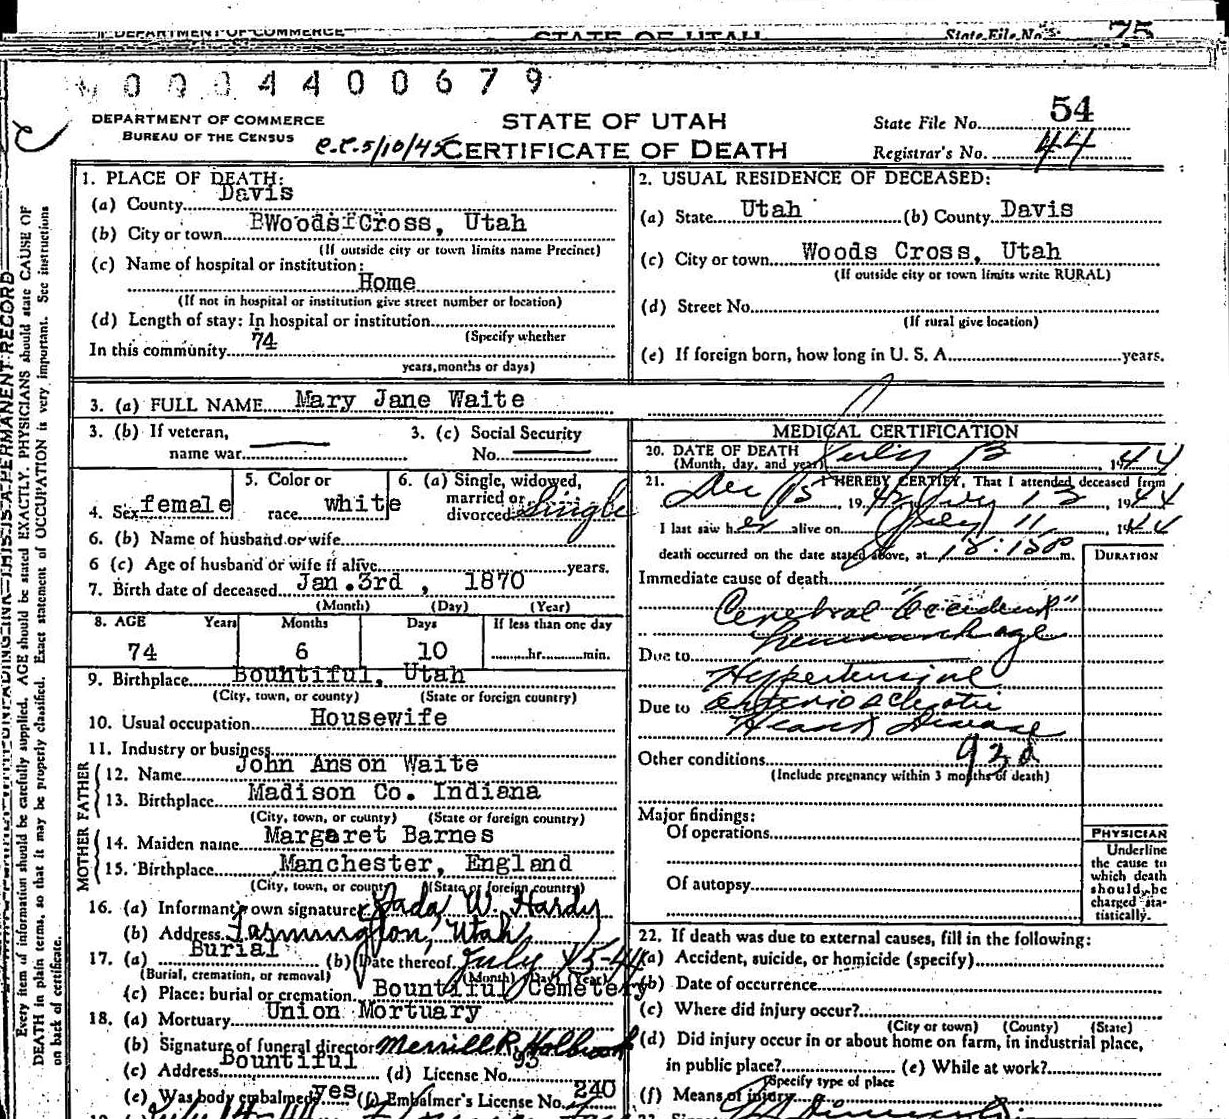 DEPARTMENT OF COMMERCE
STATE OF UTAH
State File No. 75
0004400679
DEPARTMENT OF COMMERCE
BUREAU OF THE CENSUS
STATE OF UTAH
CERTIFICATE OF DEATH
State File No. 54
Registrar's No. 44
5/10/45
THIS IS A PERMANENT RECORD
Every item of information should be carefully supplied. AGE should be stated EXACTLY. PHYSICIANS should state CAUSE OF
DEATH in plain terms, so that it may be properly classified. Exact statement of OCCUPATION is very important. See instructions
on back of certificate.
1. PLACE OF DEATH:
(a) County Davis
(b) City or town Woods Cross, Utah
(If outside city or town limits name Precinct)
(c) Name of hospital or institution:
Home
(If not in hospital or institution give street number or location)
(d) Length of stay: In hospital or institution
(Specify whether
In this community 74
years, months or days)
2. USUAL RESIDENCE OF DECEASED:
(a) State Utah (b) County Davis
(c) City or town Woods Cross, Utah
(If outside city or town limits write RURAL)
(d) Street No.
(If rural give location)
(e) If foreign born, how long in U. S. A. years.
3. (a) FULL NAME Mary Jane Waite
3. (b) If veteran,
name war
3. (c) Social Security
No.
4. Sex female
5. Color or
race white
6. (a) Single, widowed,
married or
divorced Single
6. (b) Name of husband or wife
6 (c) Age of husband or wife if alive years.
7. Birth date of deceased Jan. 3rd, 1870
(Month) (Day) (Year)
8. AGE Years Months Days If less than one day
74 6 10 hr. min.
9. Birthplace Bountiful, Utah
(City, town, or county) (State or foreign country)
10. Usual occupation Housewife
11. Industry or business
FATHER
12. Name John Anson Waite
13. Birthplace Madison Co. Indiana
(City, town, or county) (State or foreign country)
MOTHER
14. Maiden name Margaret Barnes
15. Birthplace Manchester, England
(City, town, or county) (State or foreign country)
16. (a) Informant's own signature W. Hardy
(b) Address Farmington, Utah
17. (a) Burial (b) Date thereof July 15-44
(Burial, cremation, or removal) (Month) (Day) (Year)
(c) Place: burial or cremation Bountiful Cemetery
18. (a) Mortuary Union Mortuary
(b) Signature of funeral director Merrill R. Holbrook
(c) Address Bountiful (d) License No. 93
(e) Was body embalmed? yes (f) Embalmer's License No. 240
MEDICAL CERTIFICATION
20. DATE OF DEATH
(Month, day, and year) July 13, 1944
21. I HEREBY CERTIFY, That I attended deceased from
Dec 15, 1942, July 13, 1944
I last saw her alive on July 11, 1944
death occurred on the date stated above, at m.
DURATION
Immediate cause of death
Cerebral "Accident"
hemorrhage
Due to
Hypertensive
Due to arteriosclerotic
Heart Disease
Other conditions 93d
(Include pregnancy within 3 months of death)
Major findings:
Of operations
Of autopsy
PHYSICIAN
Underline
the cause to
which death
should be
charged sta-
tistically.
22. If death was due to external causes, fill in the following:
(a) Accident, suicide, or homicide (specify)
(b) Date of occurrence
(c) Where did injury occur?
(City or town) (County) (State)
(d) Did injury occur in or about home on farm, in industrial place,
in public place? (e) While at work?
(Specify type of place
(f) Means of injury